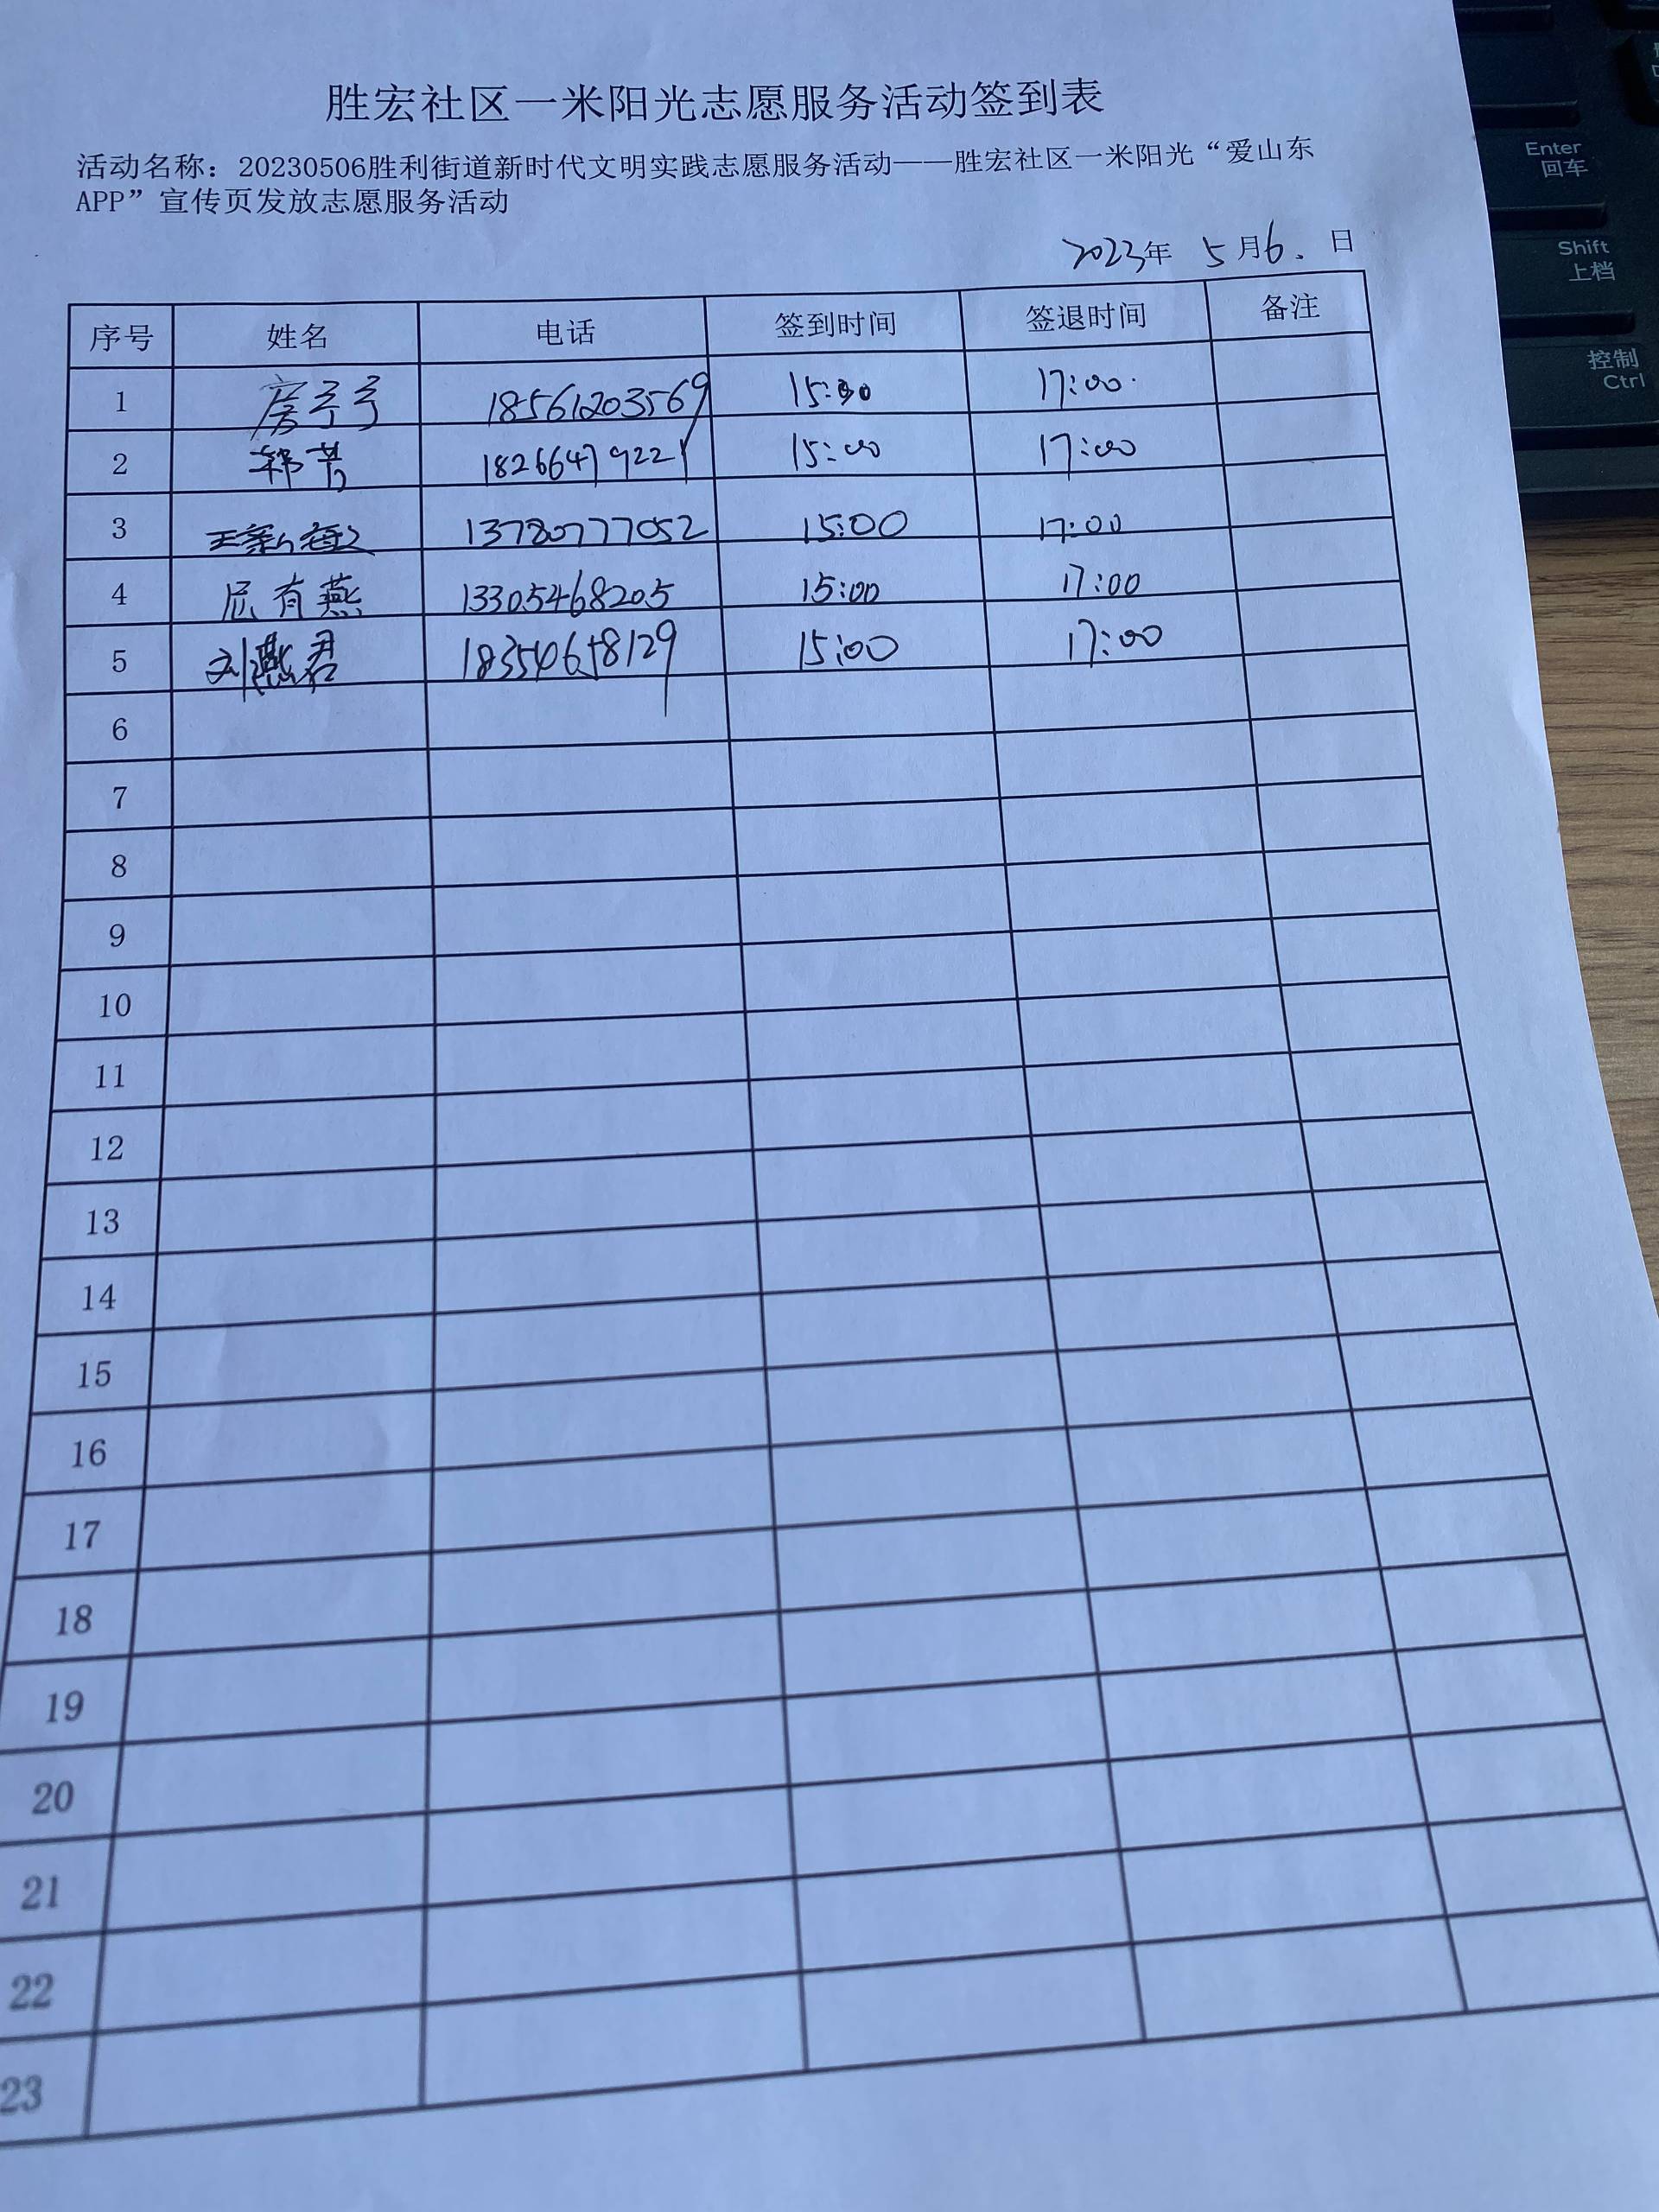 胜宏社区一米阳光志愿服务活动签到表
活动名称：20230506胜利街道新时代文明实践志愿服务活动——胜宏社区一米阳光“爱山东
APP”宣传页发放志愿服务活动
2023年 5月6.日
序号 姓名 电话 签到时间 签退时间 备注
1 18561203569 15:00 17:00
2 18266479221 15:00 17:00
3 13780777052 15:00 17:00
4 尼有燕 13305468205 15:00 17:00
5 刘燕君 18354658129 15:00 17:00
6
7
8
9
10
11
12
13
14
15
16
17
18
19
20
21
22
23
Enter
回车
Shift
上档
控制
Ctrl